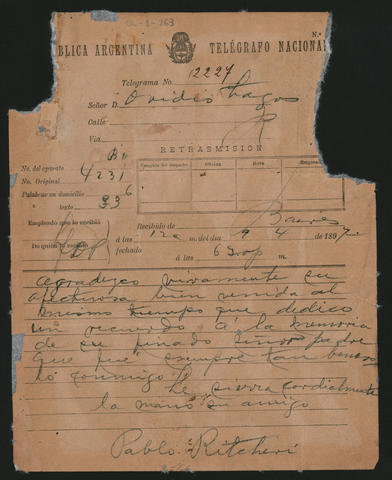 A-1-263
N.º
BLICA ARGENTINA TELÉGRAFO NACIONAL
Telegrama No. 12227
Señor D. Ovidio Lagos
Calle
Via
RETRASMISION
Oficina Hora
No. del aparato B
No. Original 4231
Palabras en domicilio 6
texto 53
Empleado que lo recibió
De quién lo recibió
Recibido de Baires
á las 12 m. del dia 9 4 1897
fechado á las 6 30 p m.
Agradezco vivamente su
afectuosa bien venida al
mismo tiempo que dedico
un recuerdo a la memoria
de su finado señor padre
que fué siempre tan bueno
conmigo
Le cordialmente
la mano su amigo
Pablo Ritcheri